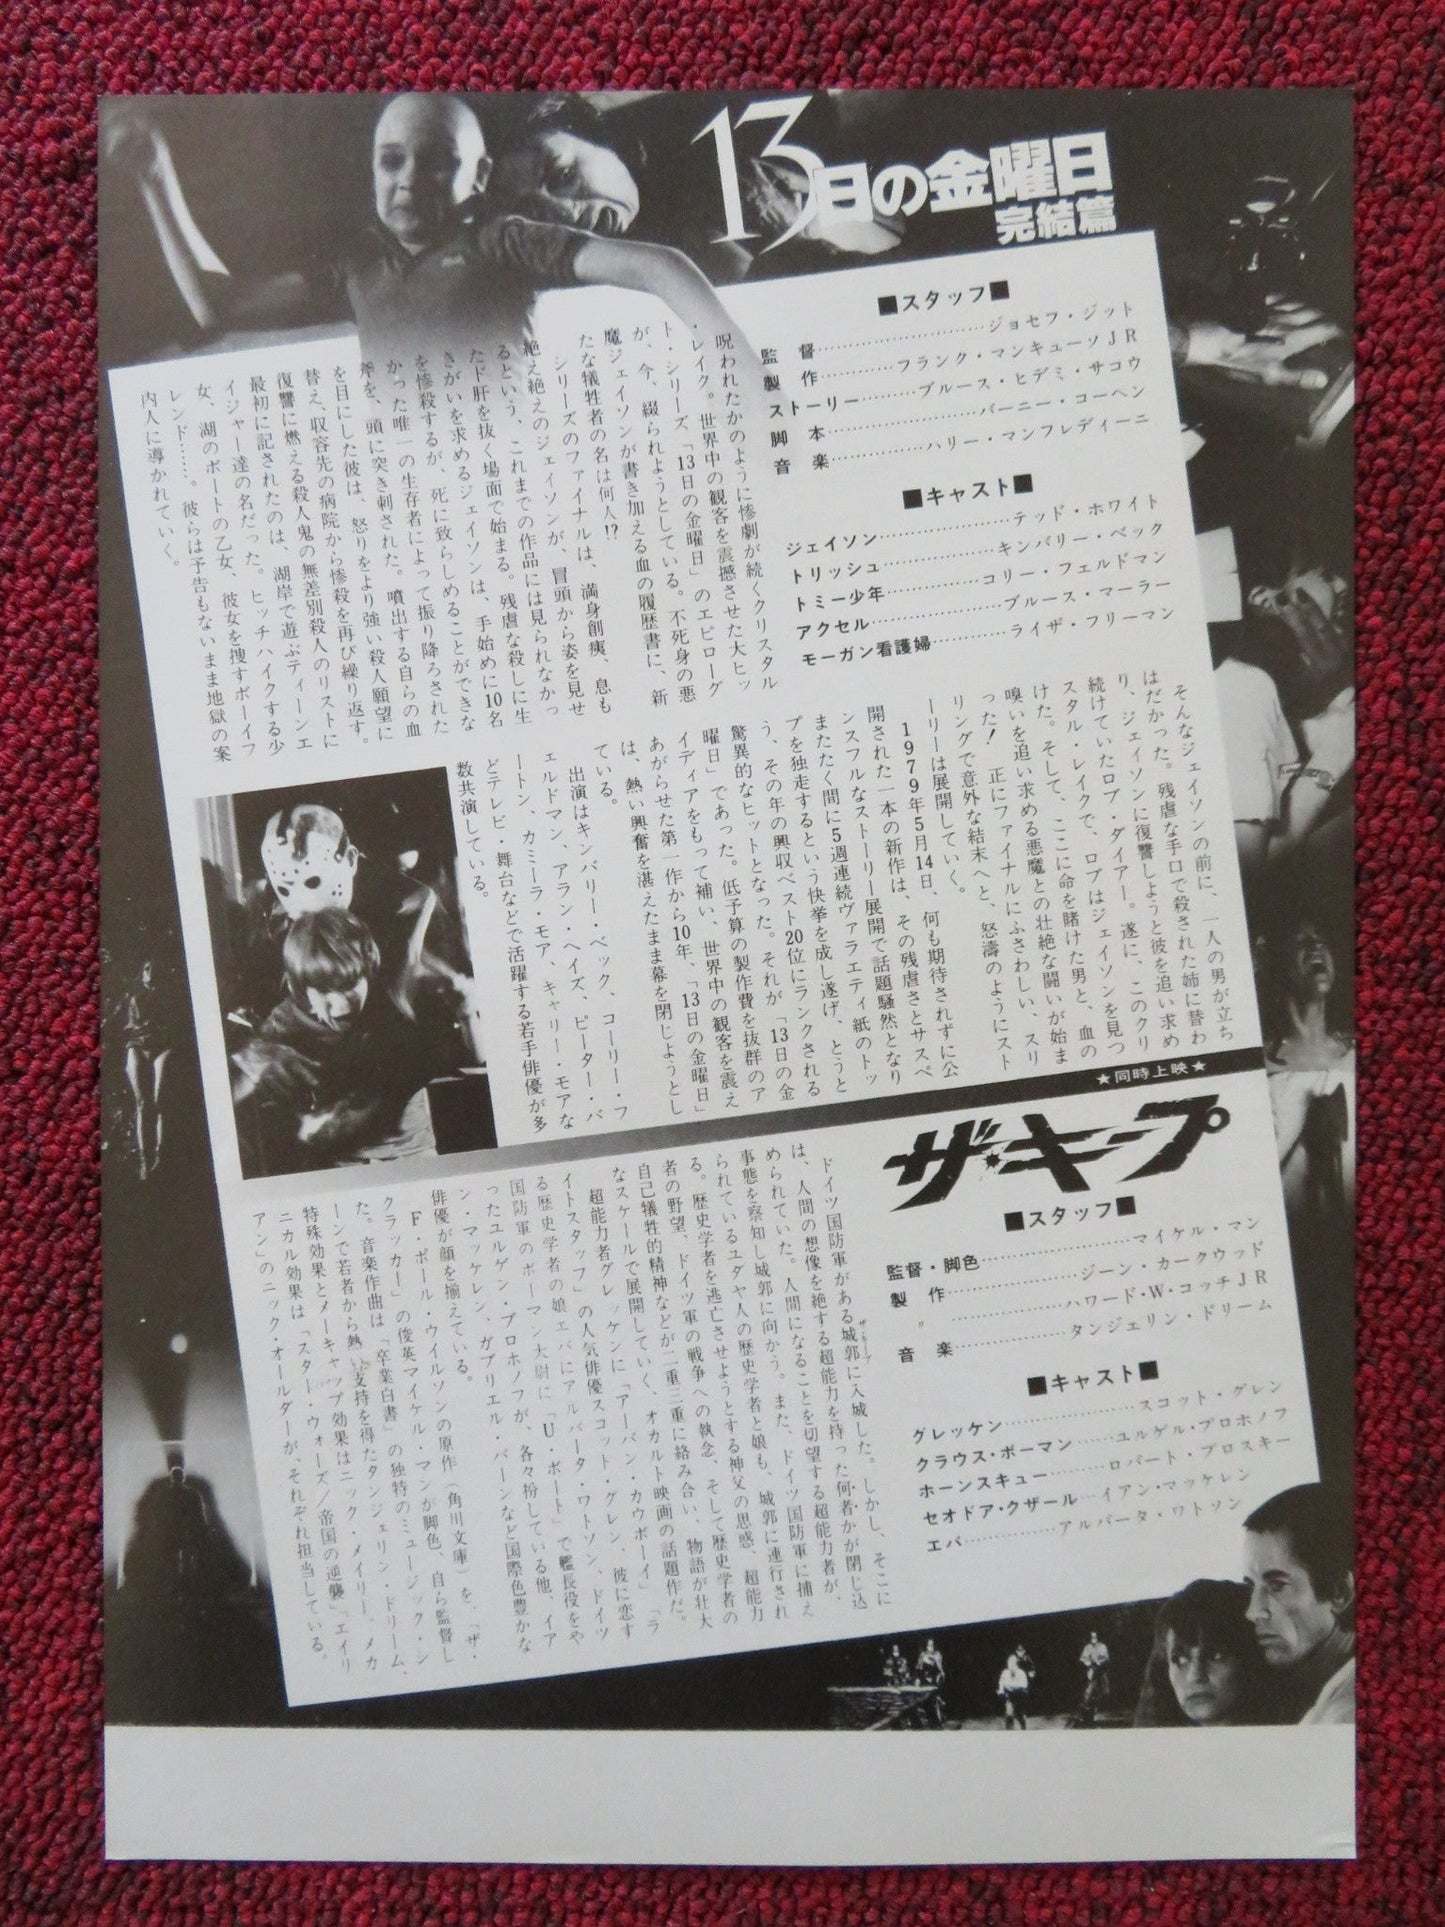 13日の金曜日
完結篇
■スタッフ■
監　督……………………ジョセフ・ジット
製　作…………フランク・マンキューソJR
ストーリー………ブルース・ヒデミ・サコウ
脚　本……………………バーニー・コーヘン
音　楽……………ハリー・マンフレディーニ
■キャスト■
ジェイソン……………………テッド・ホワイト
トリッシュ……………………キンバリー・ベック
トミー少年……………コリー・フェルドマン
アクセル………………ブルース・マーラー
モーガン看護婦…………ライザ・フリーマン
呪われたかのように惨劇が続くクリスタル
・レイク。世界中の観客を震撼させた大ヒッ
ト・シリーズ「13日の金曜日」のエピローグ
が、今、綴られようとしている。不死身の悪
魔ジェイソンが書き加える血の履歴書に、新
たな犠牲者の名は何人!?
シリーズのファイナルは、満身創痍、息も
絶え絶えのジェイソンが、冒頭から姿を見せ
るという、これまでの作品には見られなかっ
たド肝を抜く場面で始まる。残虐な殺しに生
きがいを求めるジェイソンは、手始めに10名
を惨殺するが、死に致らしめることができな
かった唯一の生存者によって振り降ろされた
斧を、頭に突き刺された。噴出する自らの血
を目にした彼は、怒りをより強い殺人願望に
替え、収容先の病院から惨殺を再び繰り返す。
復讐に燃える殺人鬼の無差別殺人のリストに
最初に記されたのは、湖岸で遊ぶティーンエ
イジャー達の名だった。ヒッチハイクする少
女、湖のボートの乙女、彼女を捜すボーイフ
レンド……。彼らは予告もないまま地獄の案
内人に導かれていく。
そんなジェイソンの前に、一人の男が立ち
はだかった。残虐な手口で殺された姉に替わ
り、ジェイソンに復讐しようと彼を追い求め
続けていたロブ・ダイアー。遂に、このクリ
スタル・レイクで、ロブはジェイソンを見つ
けた。そして、ここに命を賭けた男と、血の
嗅いを追い求める悪魔との壮絶な闘いが始ま
った！　正にファイナルにふさわしい、スリ
リングで意外な結末へと、怒濤のようにスト
ーリーは展開していく。
1979年5月14日、何も期待されずに公
開された一本の新作は、その残虐さとサスペ
ンスフルなストーリー展開で話題騒然となり
またたく間に5週連続ヴァラエティ紙のトッ
プを独走するという快挙を成し遂げ、とうと
う、その年の興収ベスト20位にランクされる
驚異的なヒットとなった。それが「13日の金
曜日」であった。低予算の製作費を抜群のア
イディアをもって補い、世界中の観客を震え
あがらせた第一作から10年、「13日の金曜日」
は、熱い興奮を湛えたまま幕を閉じようとし
ている。
出演はキンバリー・ベック、コーリー・フ
ェルドマン、アラン・ヘイズ、ピーター・バ
ートン、カミーラ・モア、キャリー・モアな
どテレビ・舞台などで活躍する若手俳優が多
数共演している。
★同時上映★
ザ・キープ
■スタッフ■
監督・脚色……………………マイケル・マン
製　作……………………ジーン・カークウッド
〃……………………ハワード・W・コッチJR
音　楽……………………タンジェリン・ドリーム
■キャスト■
グレッケン……………………スコット・グレン
クラウス・ボーマン……ユルゲル・プロホノフ
ホーンスキュー………ロバート・プロスキー
セオドア・クザール……イアン・マッケレン
エバ……………アルバータ・ワトソン
ドイツ国防軍がある城郭に入城した。しかし、そこに
ザ・キープ
は、人間の想像を絶する超能力を持った何者かが閉じ込
められていた。人間になることを切望する超能力者が、
事態を察知し城郭に向かう。また、ドイツ国防軍に捕え
られているユダヤ人の歴史学者と娘も、城郭に連行され
る。歴史学者を逃亡させようとする神父の思惑、超能力
者の野望、ドイツ軍の戦争への執念、そして歴史学者の
自己犠牲的精神などが二重三重に絡み合い、物語が壮大
なスケールで展開していく、オカルト映画の話題作だ。
超能力者グレッケンに「アーバン・カウボーイ」「ラ
イトスタッフ」の人気俳優スコット・グレン、彼に恋す
る歴史学者の娘エバにアルバータ・ワトソン、ドイツ
国防軍のボーマン大尉に「U・ボート」で艦長役をや
ったユルゲン・プロホノフが、各々扮している他、イア
ン・マッケレン、ガブリエル・バーンなど国際色豊かな
俳優が顔を揃えている。
F・ポール・ウイルソンの原作（角川文庫）を、「ザ・
クラッカー」の俊英マイケル・マンが脚色、自ら監督し
た。音楽作曲は「卒業白書」の独特のミュージック・シ
ーンで若者から熱い支持を得たタンジェリン・ドリーム、
特殊効果とメーキャップ効果はニック・メイリー、メカ
ニカル効果は「スター・ウォーズ／帝国の逆襲」「エイリ
アン」のニック・オールダーが、それぞれ担当している。